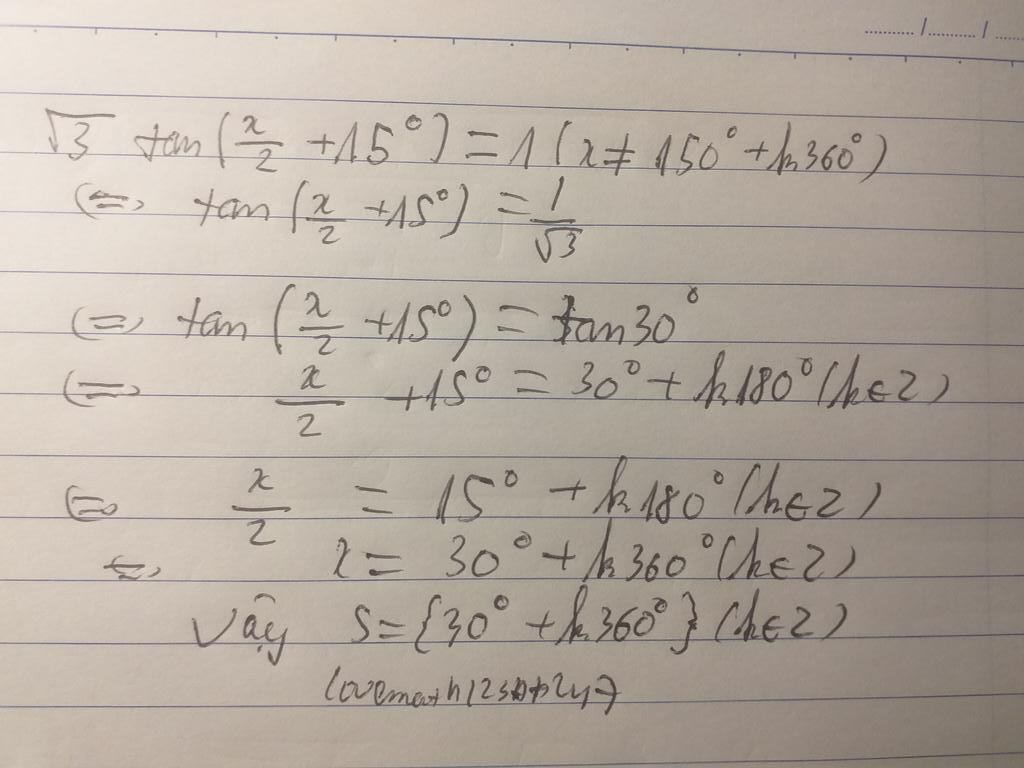 √3 tan(x/2 + 15°) = 1 (x ≠ 150° + k360°)
(=) tan(x/2 + 15°) = 1/√3
(=) tan(x/2 + 15°) = tan30°
(=) x/2 + 15° = 30° + k180° (k∈Z)
(=) x/2 = 15° + k180° (k∈Z)
(=) x = 30° + k360° (k∈Z)
Vậy S = {30° + k360°} (k∈Z)